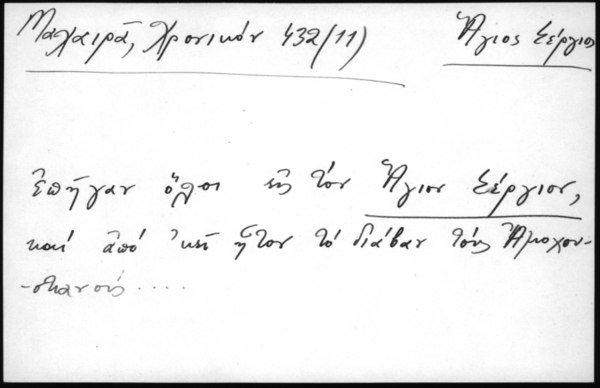 Μαχαιρᾶ, Χρονικόν 432/11) Ἅγιος Σέργιος
Ἐπῆγαν ὅλοι εἰς τὸν Ἅγιον Σέργιον,
καί ἀπό 'κεῖ ἦτον τό διάβαν τούς Ἀμοχου-
-στιανούς ....